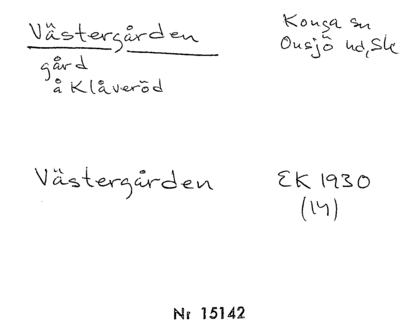 Västergården
Konga sn
Onsjö hd, Sk
gård
å Klåveröd
Västergården
EK 1930
(14)
Nr 15142